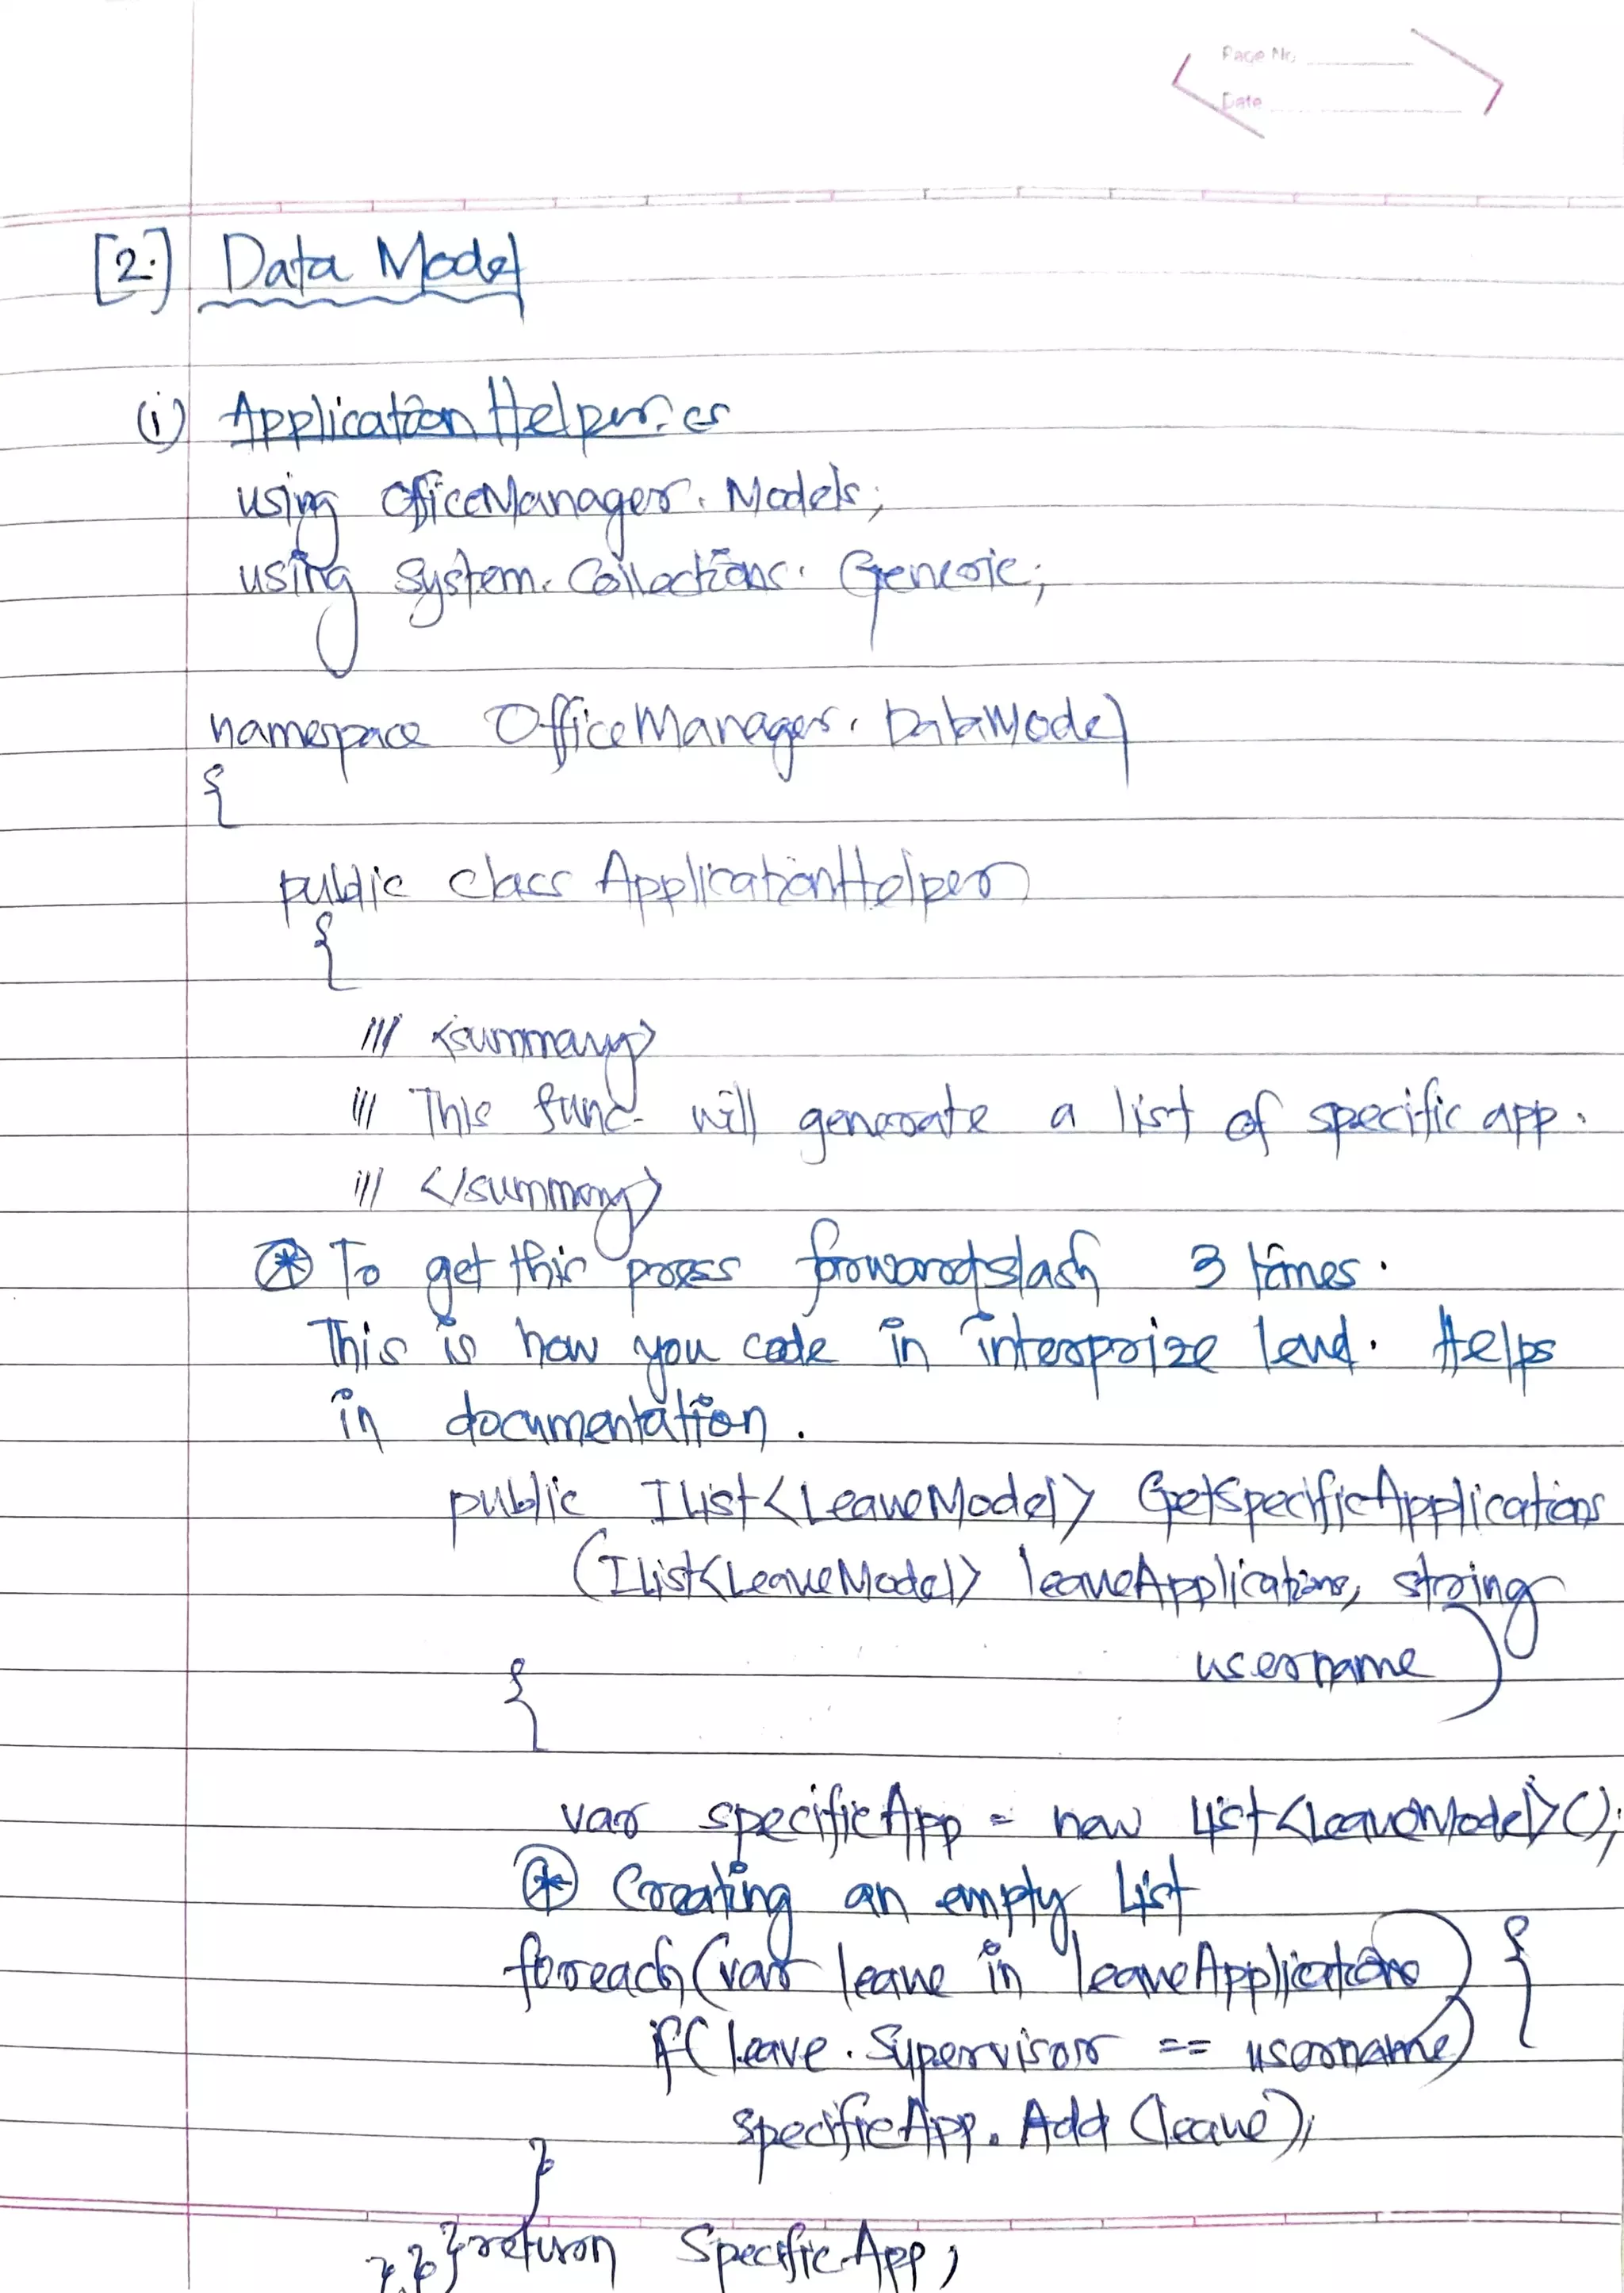 Page No.
Date
[2.] Data Model
(i) ApplicationHelper.cs
using OfficeManager.Models;
using System.Collections.Generic;
namespace OfficeManager.DataModel
{
public class ApplicationHelper
{
/// <summary>
/// This func- will generate a list of specific app.
/// </summary>
⊛ To get this press forwardslash 3 times.
This is how you code in interprize level. Helps
in documentation.
public IList<LeaveModel> GetSpecificApplications
(IList<LeaveModel> leaveApplications, string
username)
{
var specificApp = new List<LeaveModel>();
⊛ Creating an empty List
foreach(var leave in leaveApplications) {
if(leave.Supervisor == username)
specificApp.Add(leave);
}
}}}return SpecificApp;